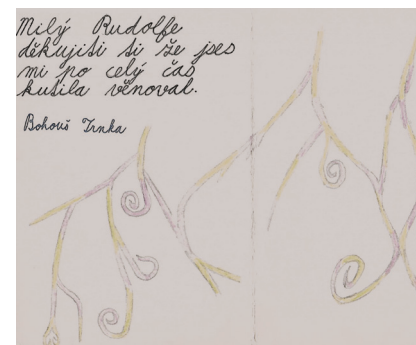 Milý Rudolfe
děkujiti si že jses
mi po celý čas
kusila věnoval.
Bohouš Trnka